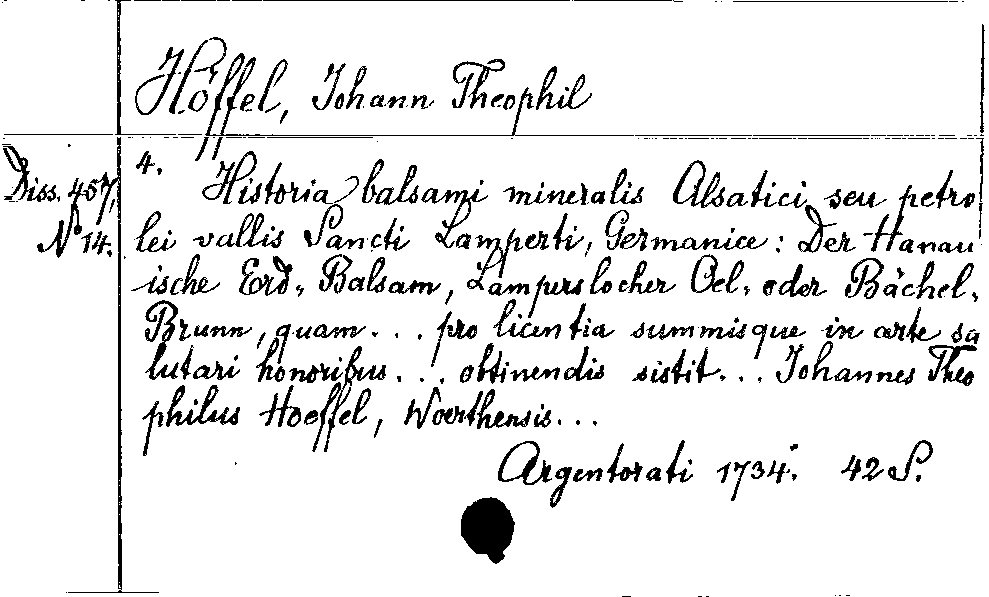 Höffel, Johann Theophil
Diss. 457,
No 14.
4. Historia balsami mineralis Alsatici seu petro
lei vallis Sancti Lamperti, Germanice: Der Hanau
ische Erd-Balsam, Lamperslocher Oel- oder Bächel-
Brunn, quam... pro licentia summisque in arte sa
lutari honoribus... obtinendis sistit... Johannes Theo
philus Hoeffel, Woerthensis...
Argentorati 1734. 42 S.